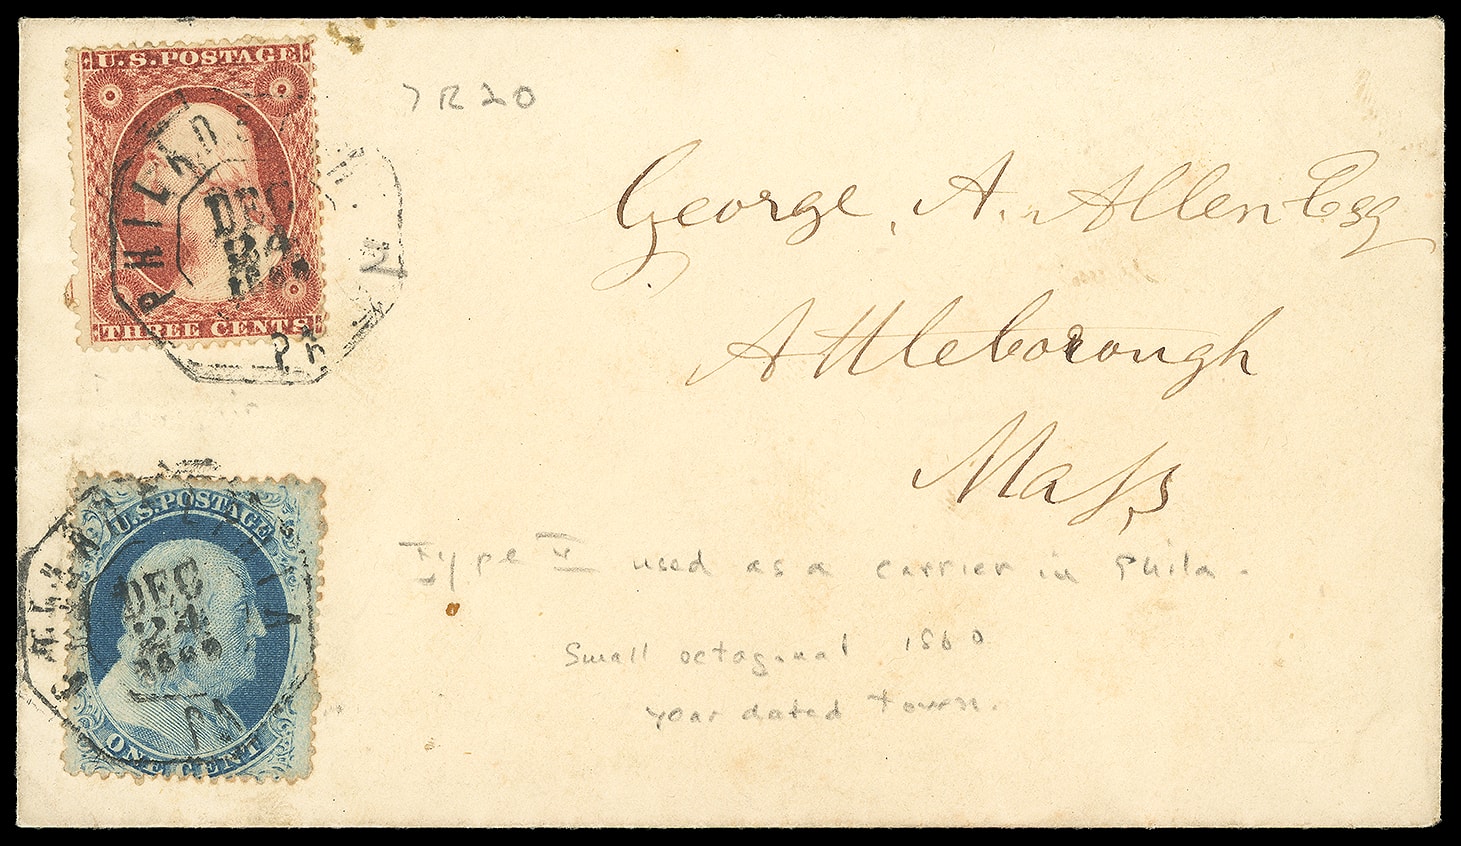 U.S. POSTAGE
THREE CENTS
PHILADELPHIA
DEC
24
1860
PA
7R20
George. A. Allen Esq
Attleborough
Mass
U.S. POSTAGE
ONE CENT
PHILADELPHIA
DEC
24
1860
PA
Type V used as a carrier in Phila.
Small octagonal 1860
year dated town.